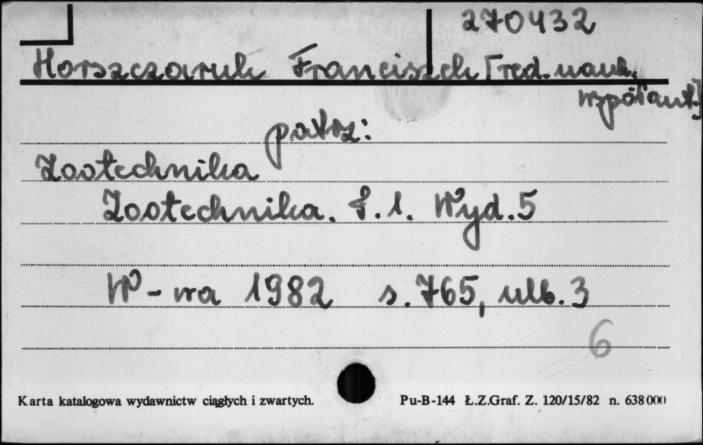 270432
Horszczaruk Franciszek [red. nauk.
współaut]
patrz:
Zootechnika
Zootechnika. T. 1. Wyd. 5
W-wa 1982 s. 765, ulb. 3
6
Karta katalogowa wydawnictw ciągłych i zwartych. Pu-B-144 Ł.Z.Graf. Z. 120/15/82 n. 638000